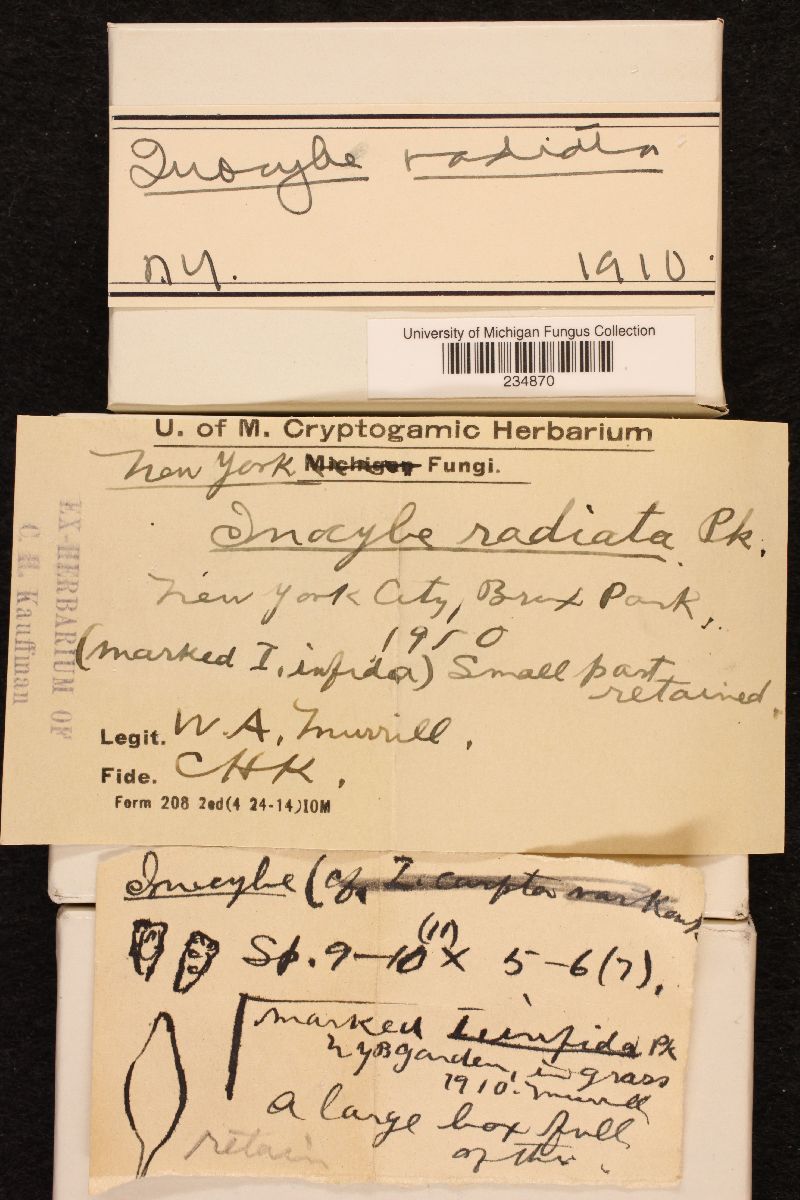 Inocybe radiata
N.Y. 1910
University of Michigan Fungus Collection
234870
U. of M. Cryptogamic Herbarium
New York Michigan Fungi.
Inocybe radiata Pk.
New York City, Bronx Park,
1910
(marked I. infida) Small part
retained.
Legit. W.A. Murrill.
Fide. CHK.
Form 208 2ed(4 24-14)10M
EX-HERBARIUM OF
C. H. Kauffman
Inocybe (cf. I. carpta var
Sp. 9-10(11) x 5-6(7).
marked I. infida Pk
NYBgarden, in grass
1910. Murrill
A large box full
of this.
retain